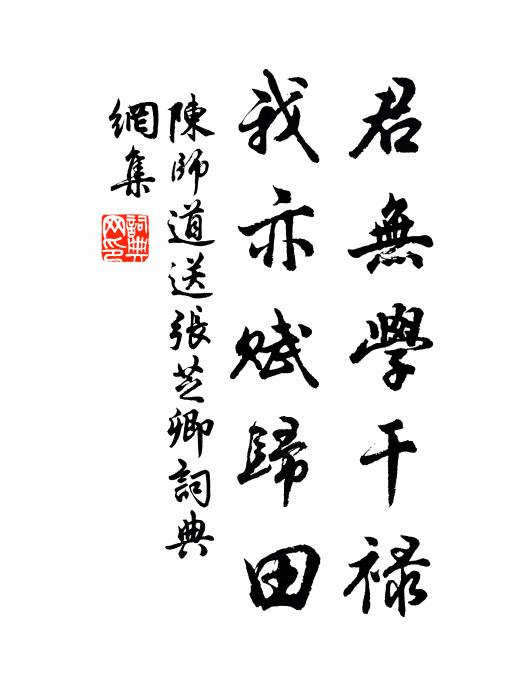 君無學干禄
我亦賦歸田
陳師道送張芝卿詞典
網集
詞典
网印